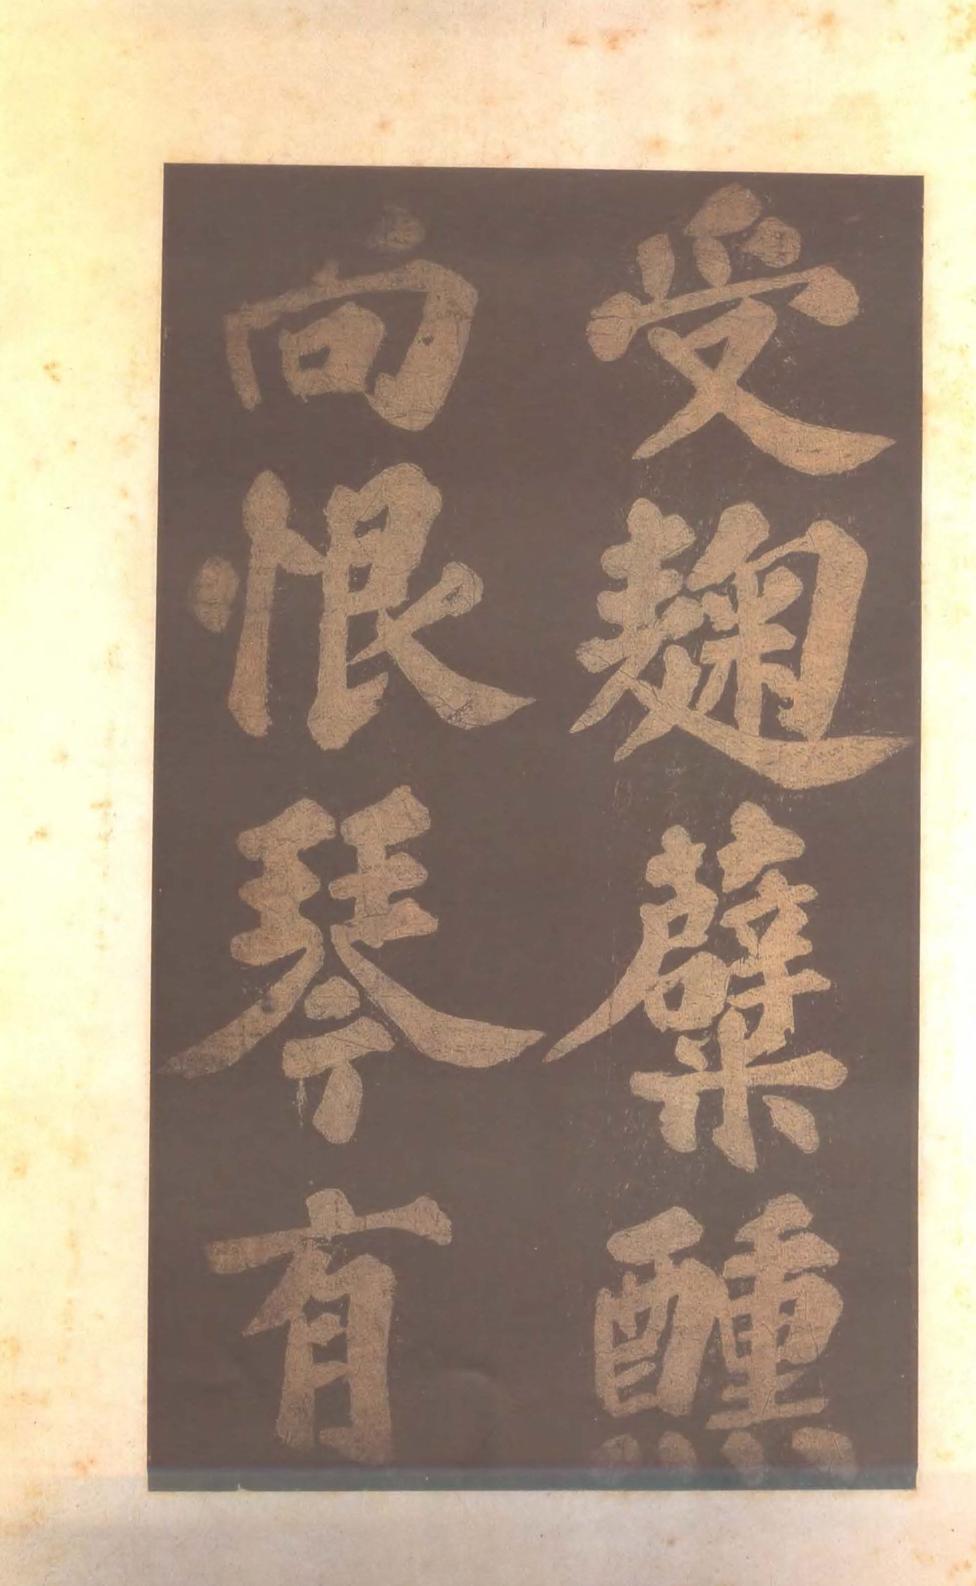 受麴糱醺
向恨琴有